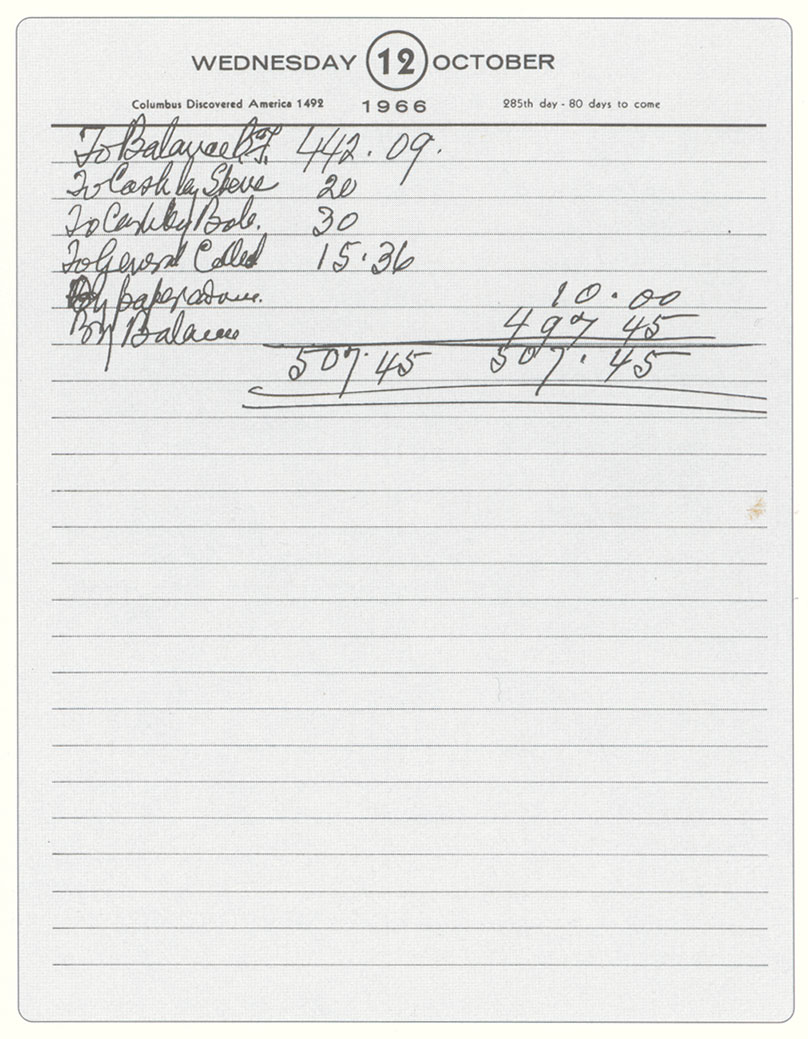 WEDNESDAY 12 OCTOBER
Columbus Discovered America 1492 1966 285th day - 80 days to come
To Balance B.F. 442.09.
To Cash by Steve 20
To Cash by Bob. 30
To General Collect 15.36
By paper 10.00
By Balance 497 45
507.45 507.45